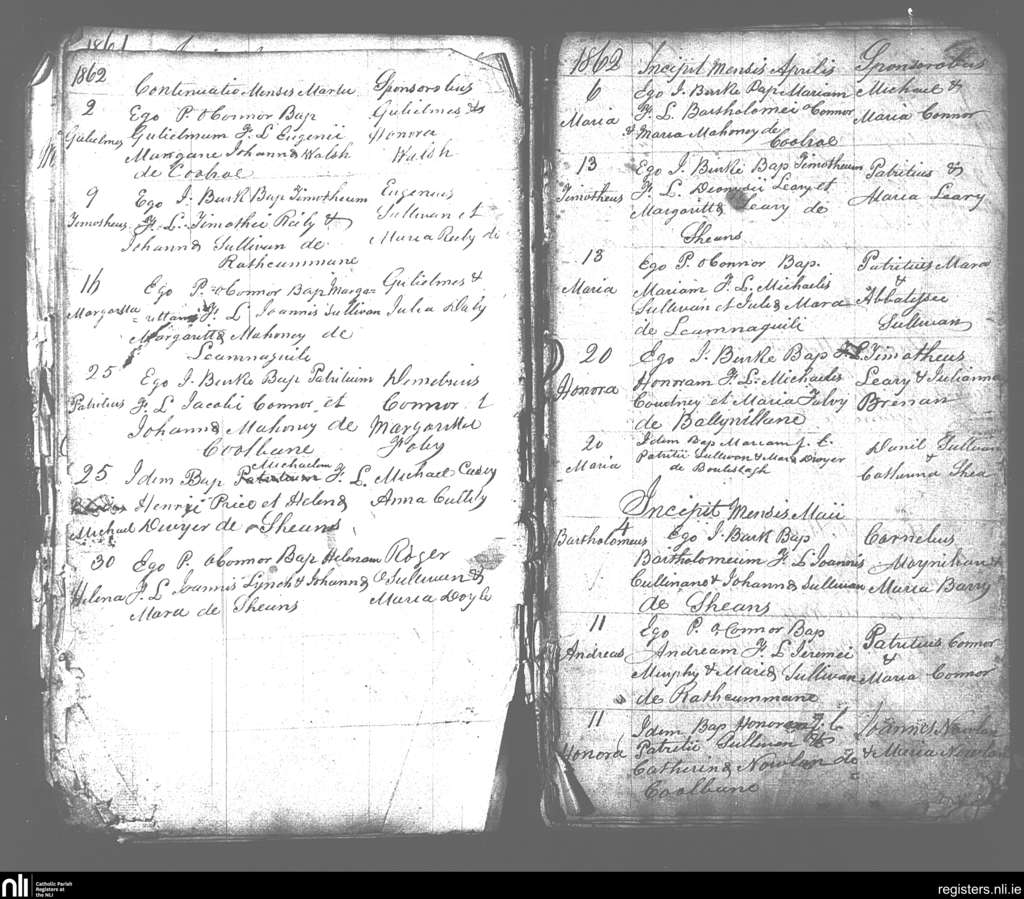 1861
1862
Continuatio Mensis Martii Sponsoribus
2 Ego P. O Connor Bap Gulielmus &
Gulielmus Gulielmum F. L Eugenii Honora
Margane Johanna Walsh Walsh
de Coolroe
9 Ego J. Burk Bap Timotheum Eugenius
Timotheus F. L. Timothei Riely & Sullivan et
Johanna Sullivan de Maria Riely de
Rathcummane
16 Ego P. O Connor Bap Marga= Gulielmus &
Margaritta =rittam F. L Joannis Sullivan Julia Daly
Margaritta Mahoney de
Scamnaguili
25 Ego J. Burke Bap Patritium Demetrius
Patritius F. L Jacobi Connor et Connor &
Johanna Mahoney de Margaritta
Coolbane Foley
Michaelem
25 Idem Bap Patritium F. L. Michael Casey
Henrii Price et Helena Anna
Michael Dwyer de Sheans
30 Ego P. O Connor Bap Helenam Roger
Helena F. L Joannis Lynch & Johanna O Sullivan &
Mara de Sheans Maria Doyle
1862 Incipit Mensis Aprilis Sponsoribus
6 Ego J. Burke Bap Mariam Michael &
Maria F. L. Bartholomei O Connor Maria Connor
& Maria Mahoney de
Coolroe
13 Ego J. Burke Bap Timotheum Patritius &
Timotheus F. L. Dionysii Leary et Maria Leary
Margaritta Leary de
Sheans
13 Ego P. O Connor Bap. Patritius Mara
Maria Mariam F. L. Michaelis &
Sullivan et Julia Mara Sullivan
de Scamnaguili
20 Ego J. Burke Bap F. L. Timotheus
Honora Honoram F. L. Michaelis Leary & Julianna
Courtney et Maria Brenan
de Ballynillane
20 Idem Bap Mariam f. L. Daniel Sullivan
Maria Patritii Sullivan & Maria Dwyer &
de Catherina Shea
Incipit Mensis Maii
4
Bartholomeus Ego J. Burk Bap Cornelius
Bartholomeum F. L Joannis Moynihan &
Cullinane & Johanna Sullivan Maria Barry
de Sheans
11 Ego P. O Connor Bap Patritius Connor
Andreas Andream F. L Jeremei &
Murphy & Maria Sullivan Maria Connor
de Rathcummane
11 Idem Bap Honoram F. L Joannes Nowlan
Honora Patritii Sullivan & & Maria Nowlan
Catherina Nowlan de
Coolbane
nli Catholic Parish
Registers at
the NLI
registers.nli.ie